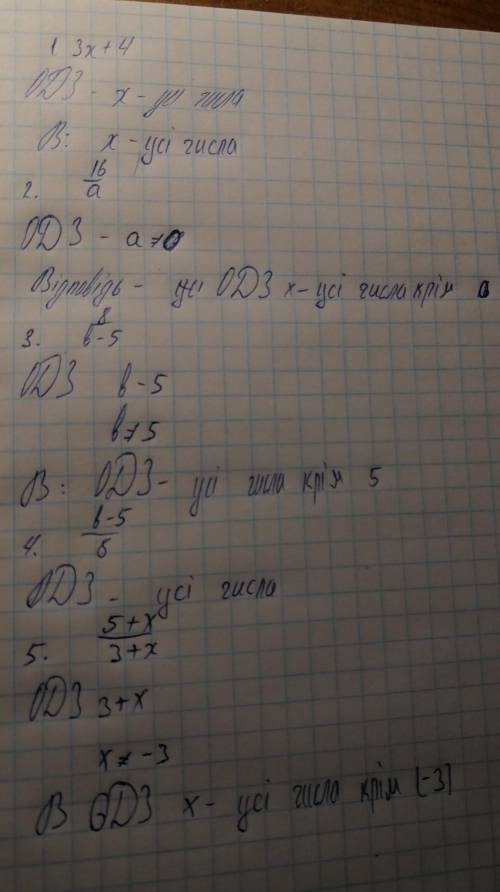 1. 3x+4
ОДЗ - x - усі числа
В: x - усі числа
2. 16/a
ОДЗ - a≠0
Відповідь - ОДЗ x - усі числа крім 0
3. 8/в-5
ОДЗ в-5
в≠5
В: ОДЗ - усі числа крім 5
4. в-5/8
ОДЗ - усі числа
5. 5+x/3+x
ОДЗ 3+x
x≠-3
В ОДЗ x - усі числа крім [-3]